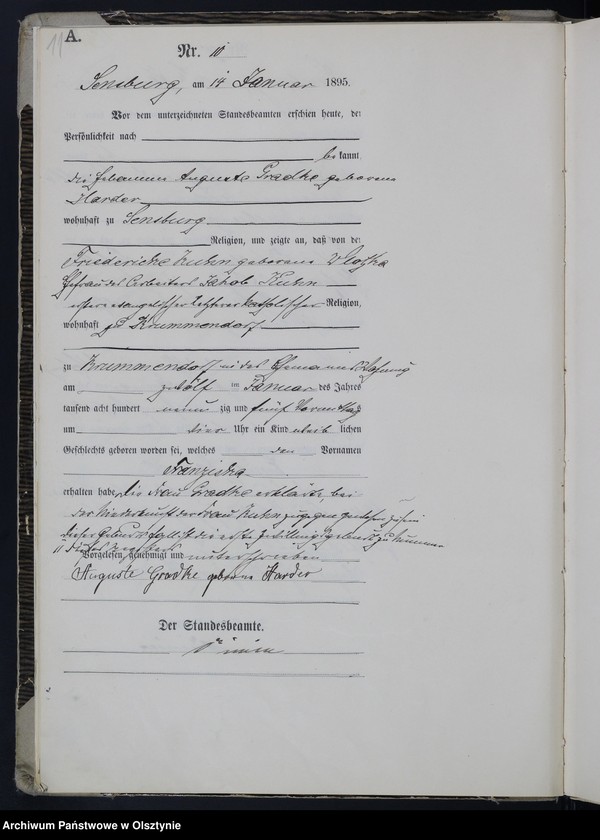 11
A.
Nr. 11
Sensburg, am 14 Januar 1895.
Vor dem unterzeichneten Standesbeamten erschien heute, der
Persönlichkeit nach
bekannt,
die Hebamme Auguste Gradke geborene
Harder
wohnhaft zu Sensburg
Religion, und zeigte an, daß von der
Friedericke Kuhn geborene
Ehefrau des Arbeiters Jakob Kuhn
erstere evangelischer letzterer katholischer Religion,
wohnhaft zu Krummendorf
zu Krummendorf in des Ehemanns Wohnung
am zwölf ten Januar des Jahres
tausend acht hundert neun zig und fünf Vormittags
um vier Uhr ein Kind weib lichen
Geschlechts geboren worden sei, welches den Vornamen
Franziska
erhalten habe. Die Frau Gradke erklärte, bei
der Niederkunft der Frau Kuhn zugegen gewesen zu sein
dieser Geburtsfall ist die erste Zwillingsgeburt zu Nummer
11
Vorgelesen, genehmigt und unterschrieben
Auguste Gradke geborene Harder
Der Standesbeamte.
Archiwum Państwowe w Olsztynie